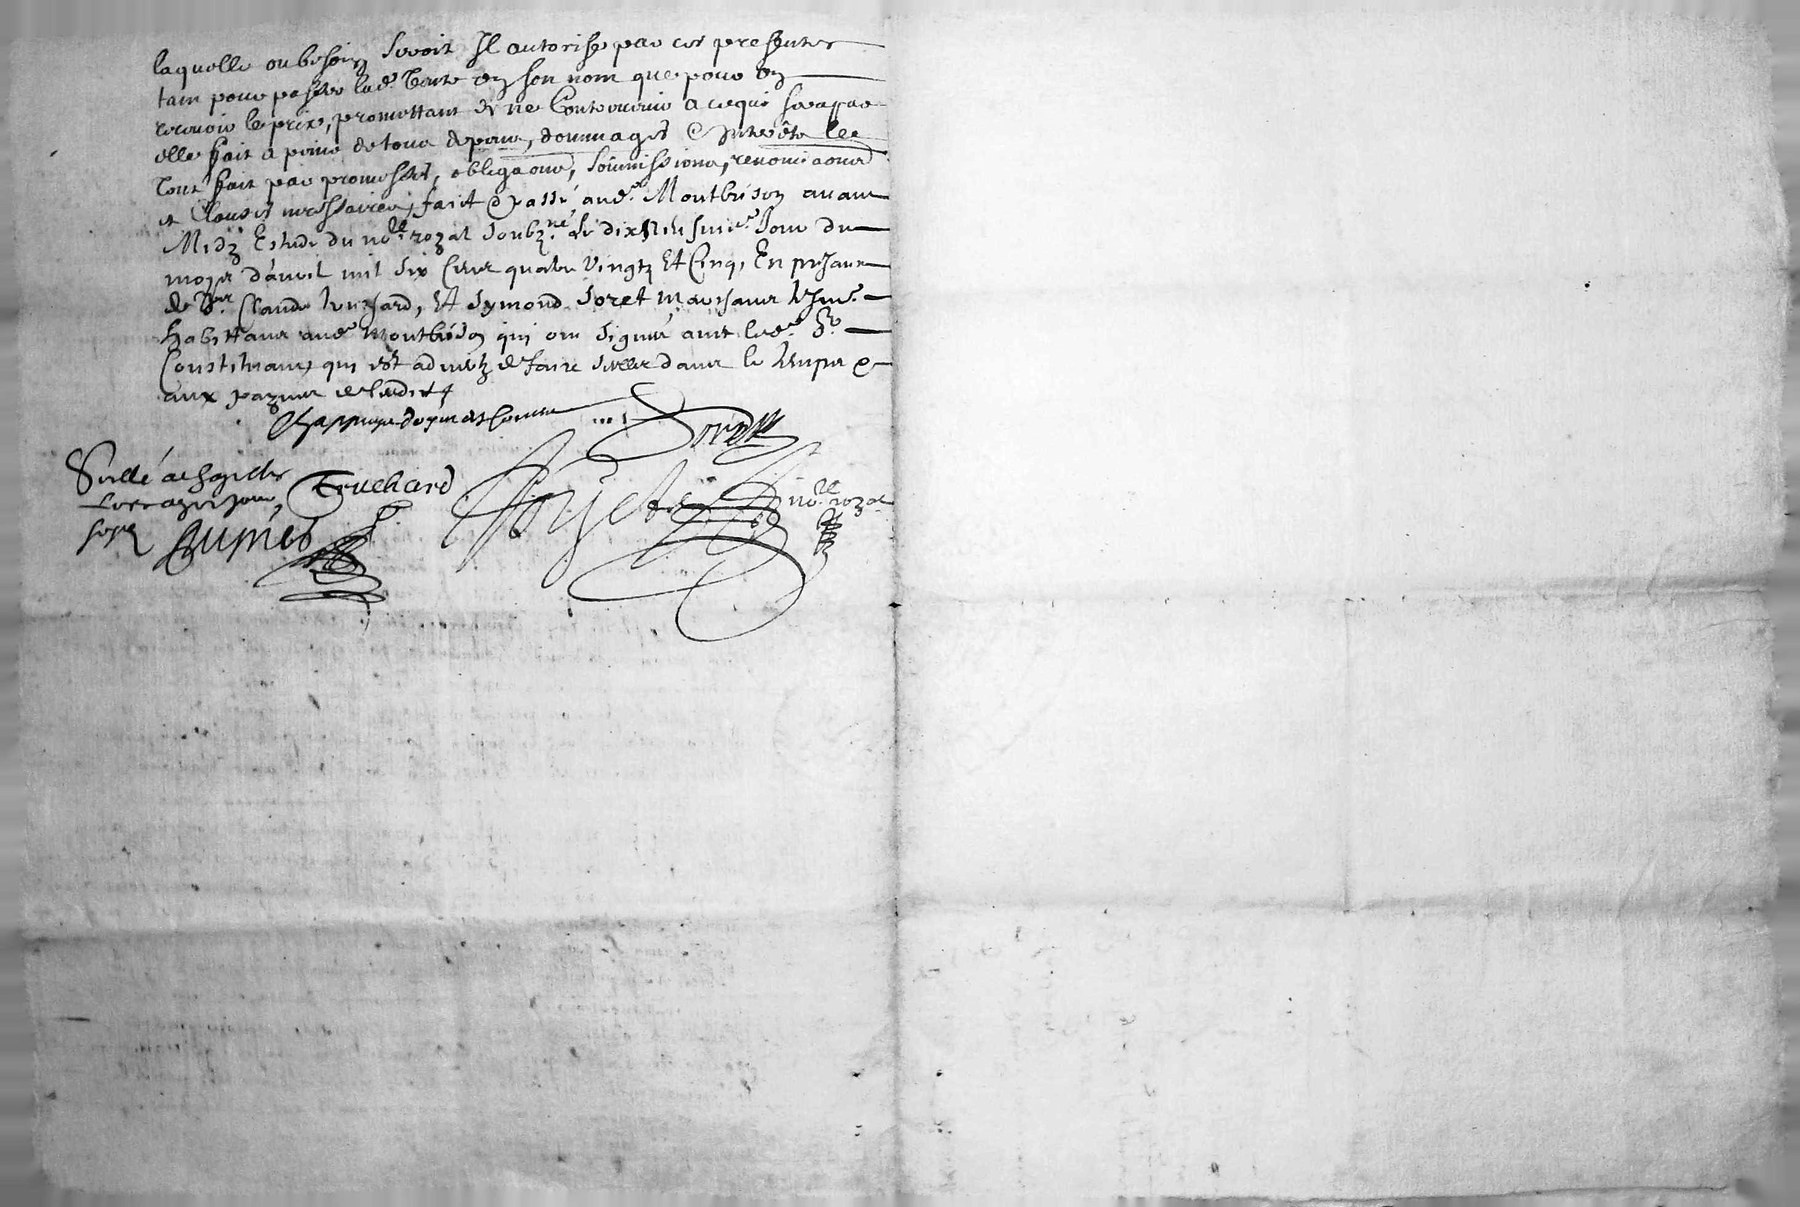 laquelle au besoin seroit Il autorise par ces presentes
tant pour passer lad.e vente en son nom que pour en
recevoir le prix, promettant de ne contrevenir a ce qui sera par
elle fait a peine de tous depans, dommages & Interêts le
tout fait par promesses, obligaons, soumissions, renonciaons
et clauses necessaires, fait & passé aud.t Montbrison avant
Midy Estude du no.re royal soubz.né le dix neufvie.e Jour du
moys d'avril mil six cens quatre vingtz Et Cinq, En presance
de s.r Claude truchard, Et Symond Soret marchant
habittans aud.t Montbrison qui ont signés avec led.t s.r
Constituant, qui est adverty de faire seeller dans le temps &
aux paynes de l'edict
Soret
Seellé
Truchard no.re royal